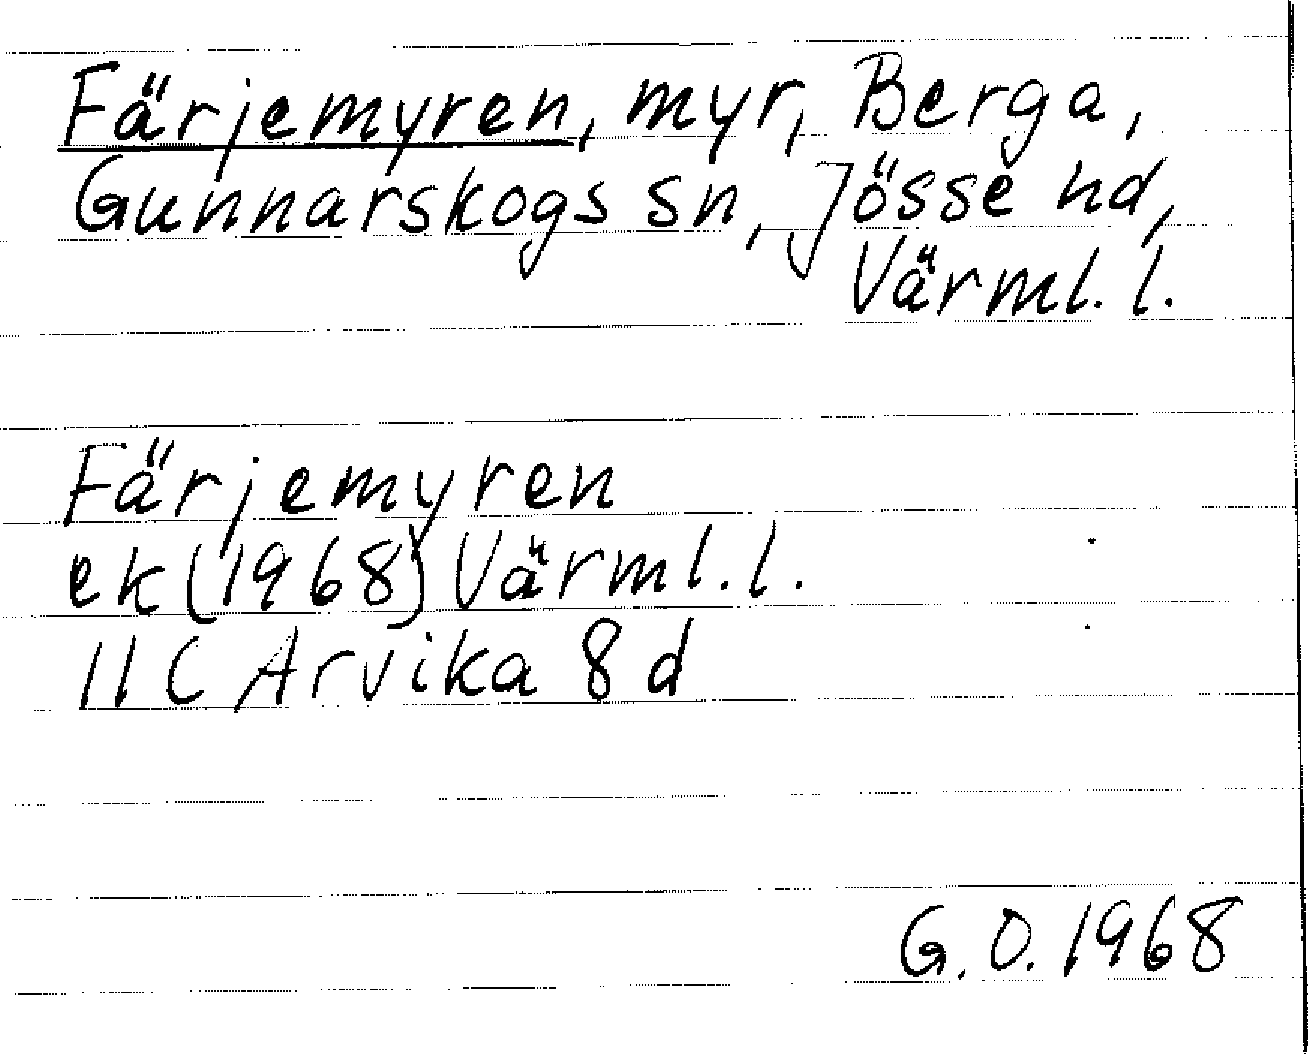 Färjemyren, myr, Berga,
Gunnarskogs sn, Jösse hd,
Värml. l.
Färjemyren
ek (1968) Värml. l.
11 C Arvika 8 d
G. O. 1968